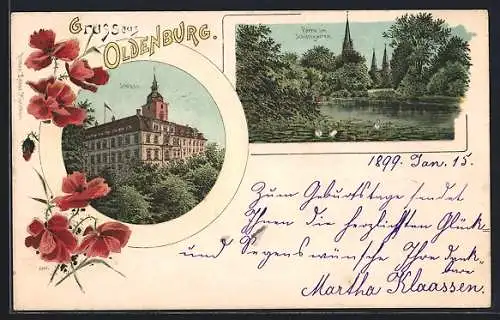 Gruss aus
OLDENBURG.
Schloss.
Partie im
Schlossgarten.
1899. Jan. 15.
Zum Geburtstage sendet
Ihnen die herzlichsten Glück-
und Segenswünsche Ihre dank-
bare
Martha Klaassen.